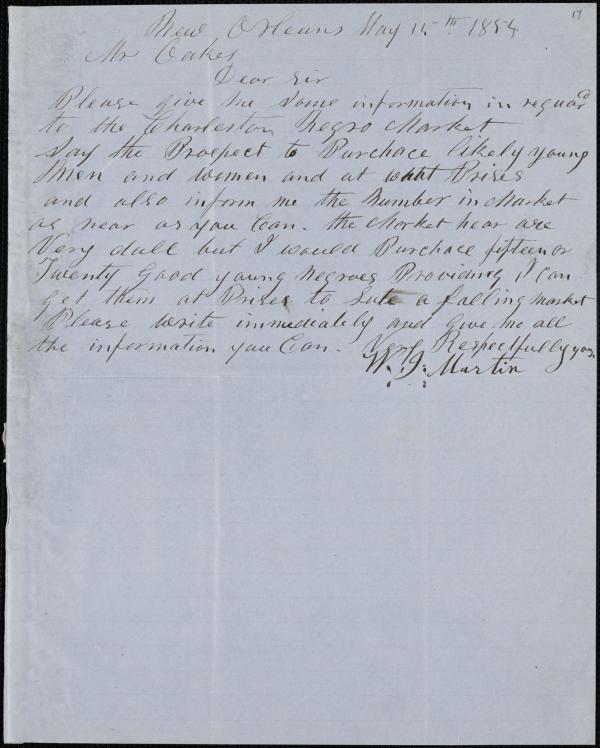 17
New Orleans May 15th 1854
Mr Oakes
Dear Sir
Please give me Some information in reguard
to the Charleston Negro Market
Say the Prospect to Purchace likely young
Men and women and at what Prises
and also inform me the Number in Market
as near as you Can. the Market hear are
Very dull but I would Purchace fifteen or
Twenty Good young Negroes Providing I Can
get them at Prises to Sute a falling market
Please write immediately and Give me all
the information you Can. Very Respectfully yos.
W. J. Martin